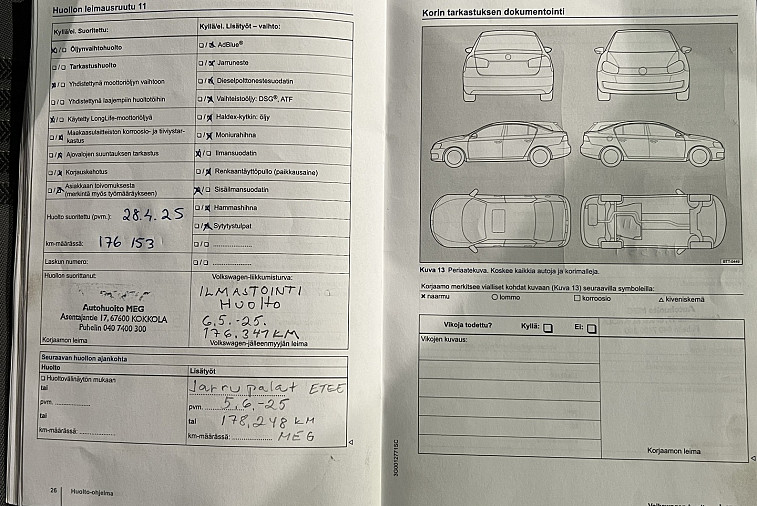 Huollon leimausruutu 11
Kyllä/ei. Suoritettu:
Öljynvaihtohuolto
Tarkastushuolto
Yhdistettynä moottoriöljyn vaihtoon
Yhdistettynä laajempiin huoltotöihin
Käytetty LongLife-moottoriöljyä
Maakaasulaitteiston korroosio- ja tiiviystar-
kastus
Ajovalojen suuntauksen tarkastus
Korjauskehotus
Asiakkaan toivomuksesta
(merkintä myös työmääräykseen)
Huolto suoritettu (pvm.): 28.4.25
km-määrässä: 176 153
Laskun numero:
Huollon suorittanut:
Autohuolto MEG
Asentajantie 17, 67600 KOKKOLA
Puhelin 040 7400 300
Korjaamon leima
Kyllä/ei. Lisätyöt – vaihto:
AdBlue®
Jarruneste
Dieselpolttonestesuodatin
Vaihteistoöljy: DSG®, ATF
Haldex-kytkin: öljy
Moniurahihna
Ilmansuodatin
Renkaantäyttöpullo (paikkausaine)
Sisäilmansuodatin
Hammashihna
Sytytystulpat
Volkswagen-liikkumisturva:
ILMASTOINTI
HUOLTO
6.5.-25.
176.347 KM
Volkswagen-jälleenmyyjän leima
Seuraavan huollon ajankohta
Huolto
Huoltovälinäytön mukaan
tai
pvm.
tai
km-määrässä:
Lisätyöt
Jarrupalat ETEE
pvm. 5.6.-25
tai 178,248 KM
km-määrässä: MEG
26 Huolto-ohjelma
Korin tarkastuksen dokumentointi
Kuva 13 Periaatekuva. Koskee kaikkia autoja ja korimalleja.
Korjaamo merkitsee vialliset kohdat kuvaan (Kuva 13) seuraavilla symboleilla:
x naarmu O lommo □ korroosio △ kiveniskemä
Vikoja todettu? Kyllä: □ Ei: □
Vikojen kuvaus:
Korjaamon leima